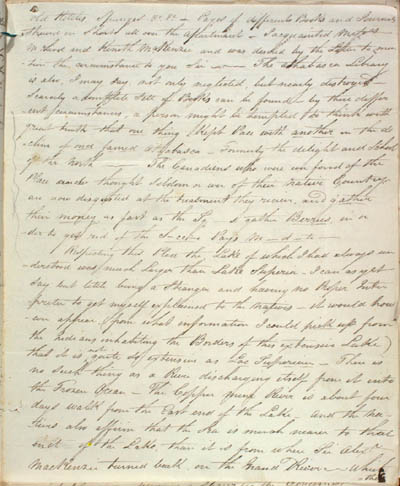 old Kettles Spunges &c. &c. - Pages of different Books and Journals
Strewn in Shoals all over the apartment - I acquainted Messrs
McLeod and Kenneth McKenzie and was desired by the latter to men-
tion the circumstance to you Sir - The Athabasca Library
is also, I may say, not only neglected, but nearly destroyed
Scarcely a complete Sett of Books can be found - by these differ-
ent circumstances, a person might be tempted to think with
great truth that one thing kept Pace with another in the de-
cline of once famed Athabasca - Formerly the delight and School
of the North - The Canadians who were en fond of the
Place and thought seldom or ever of their Native Country
are now disgusted at the treatment they receive, and gather
their money as fast as the Sq - s gather Berries, in or-
der to get rid of this Pays M - d - t -
Respecting this Place the Lake of which I had always un-
derstood was much larger than Lake Superior - I can as yet
Say but little being a Stranger and having no Proper Inter-
preter to get myself explained to the Natives - it would how-
ever appear (from what information I could pick up from
the Indians inhabiting the Borders of this extensive Lake)
that it is quite as extensive as Lac Superieur - There is
no Such thing as a River discharging itself from it into
the Frozen Ocean - The Copper Mine River is about four
days walk from the East end of the Lake - and the Na-
tives also affirm that the Sea is much nearer to that
end of the Lake, than it is from where Sir Alexr
MacKenzie turned back, on the Grand River - Which